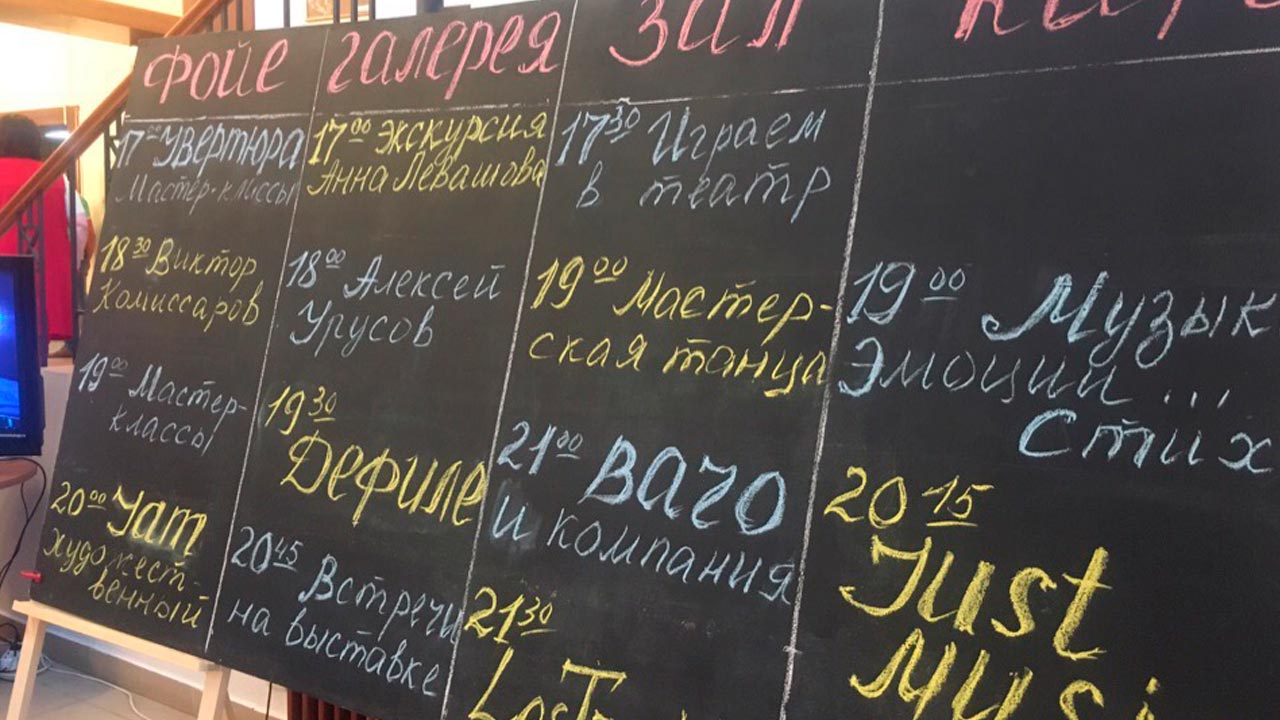 Фойе
17⁰⁰ Увертюра
Мастер-классы
18³⁰ Виктор
Комиссаров
19⁰⁰ Мастер-
классы
20⁰⁰ Jam
художест-
венный
галерея
17⁰⁰ экскурсия
Анна Левашова
18⁰⁰ Алексей
Урусов
19³⁰
Дефиле
20⁴⁵ Встречи
на выставке
Зал
17³⁰ Играем
в театр
19⁰⁰ Мастер-
ская танца
21⁰⁰ Вачо
и компания
21³⁰
19⁰⁰ Музык
Эмоции...
Стих
20¹⁵
Just
Musi